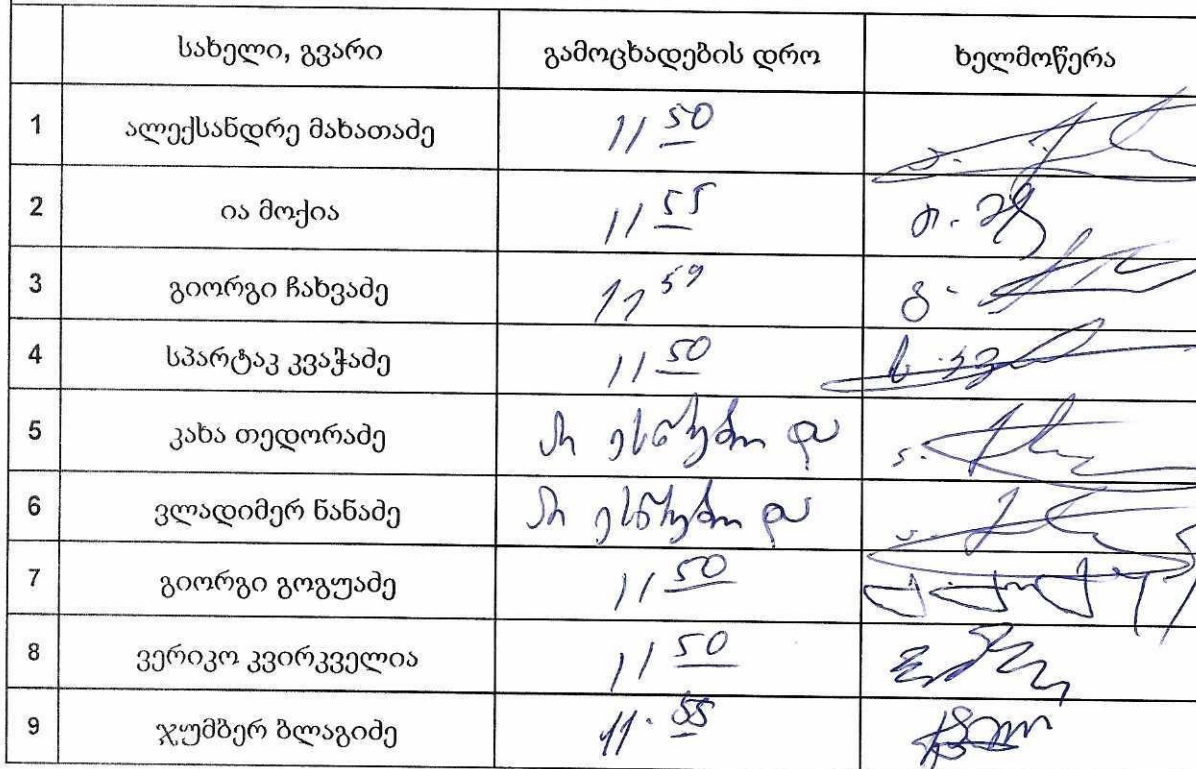 სახელი, გვარი გამოცხადების დრო ხელმოწერა
1 ალექსანდრე მახათაძე 11 50
2 ია მოქია 11 55
3 გიორგი ჩახვაძე 11 59
4 სპარტაკ კვაჭაძე 11 50
5 კახა თედორაძე არ ესწრებოდა
6 ვლადიმერ ნანაძე არ ესწრებოდა
7 გიორგი გოგუაძე 11 50
8 ვერიკო კვირკველია 11 50
9 ჯუმბერ ბლაგიძე 11. 55